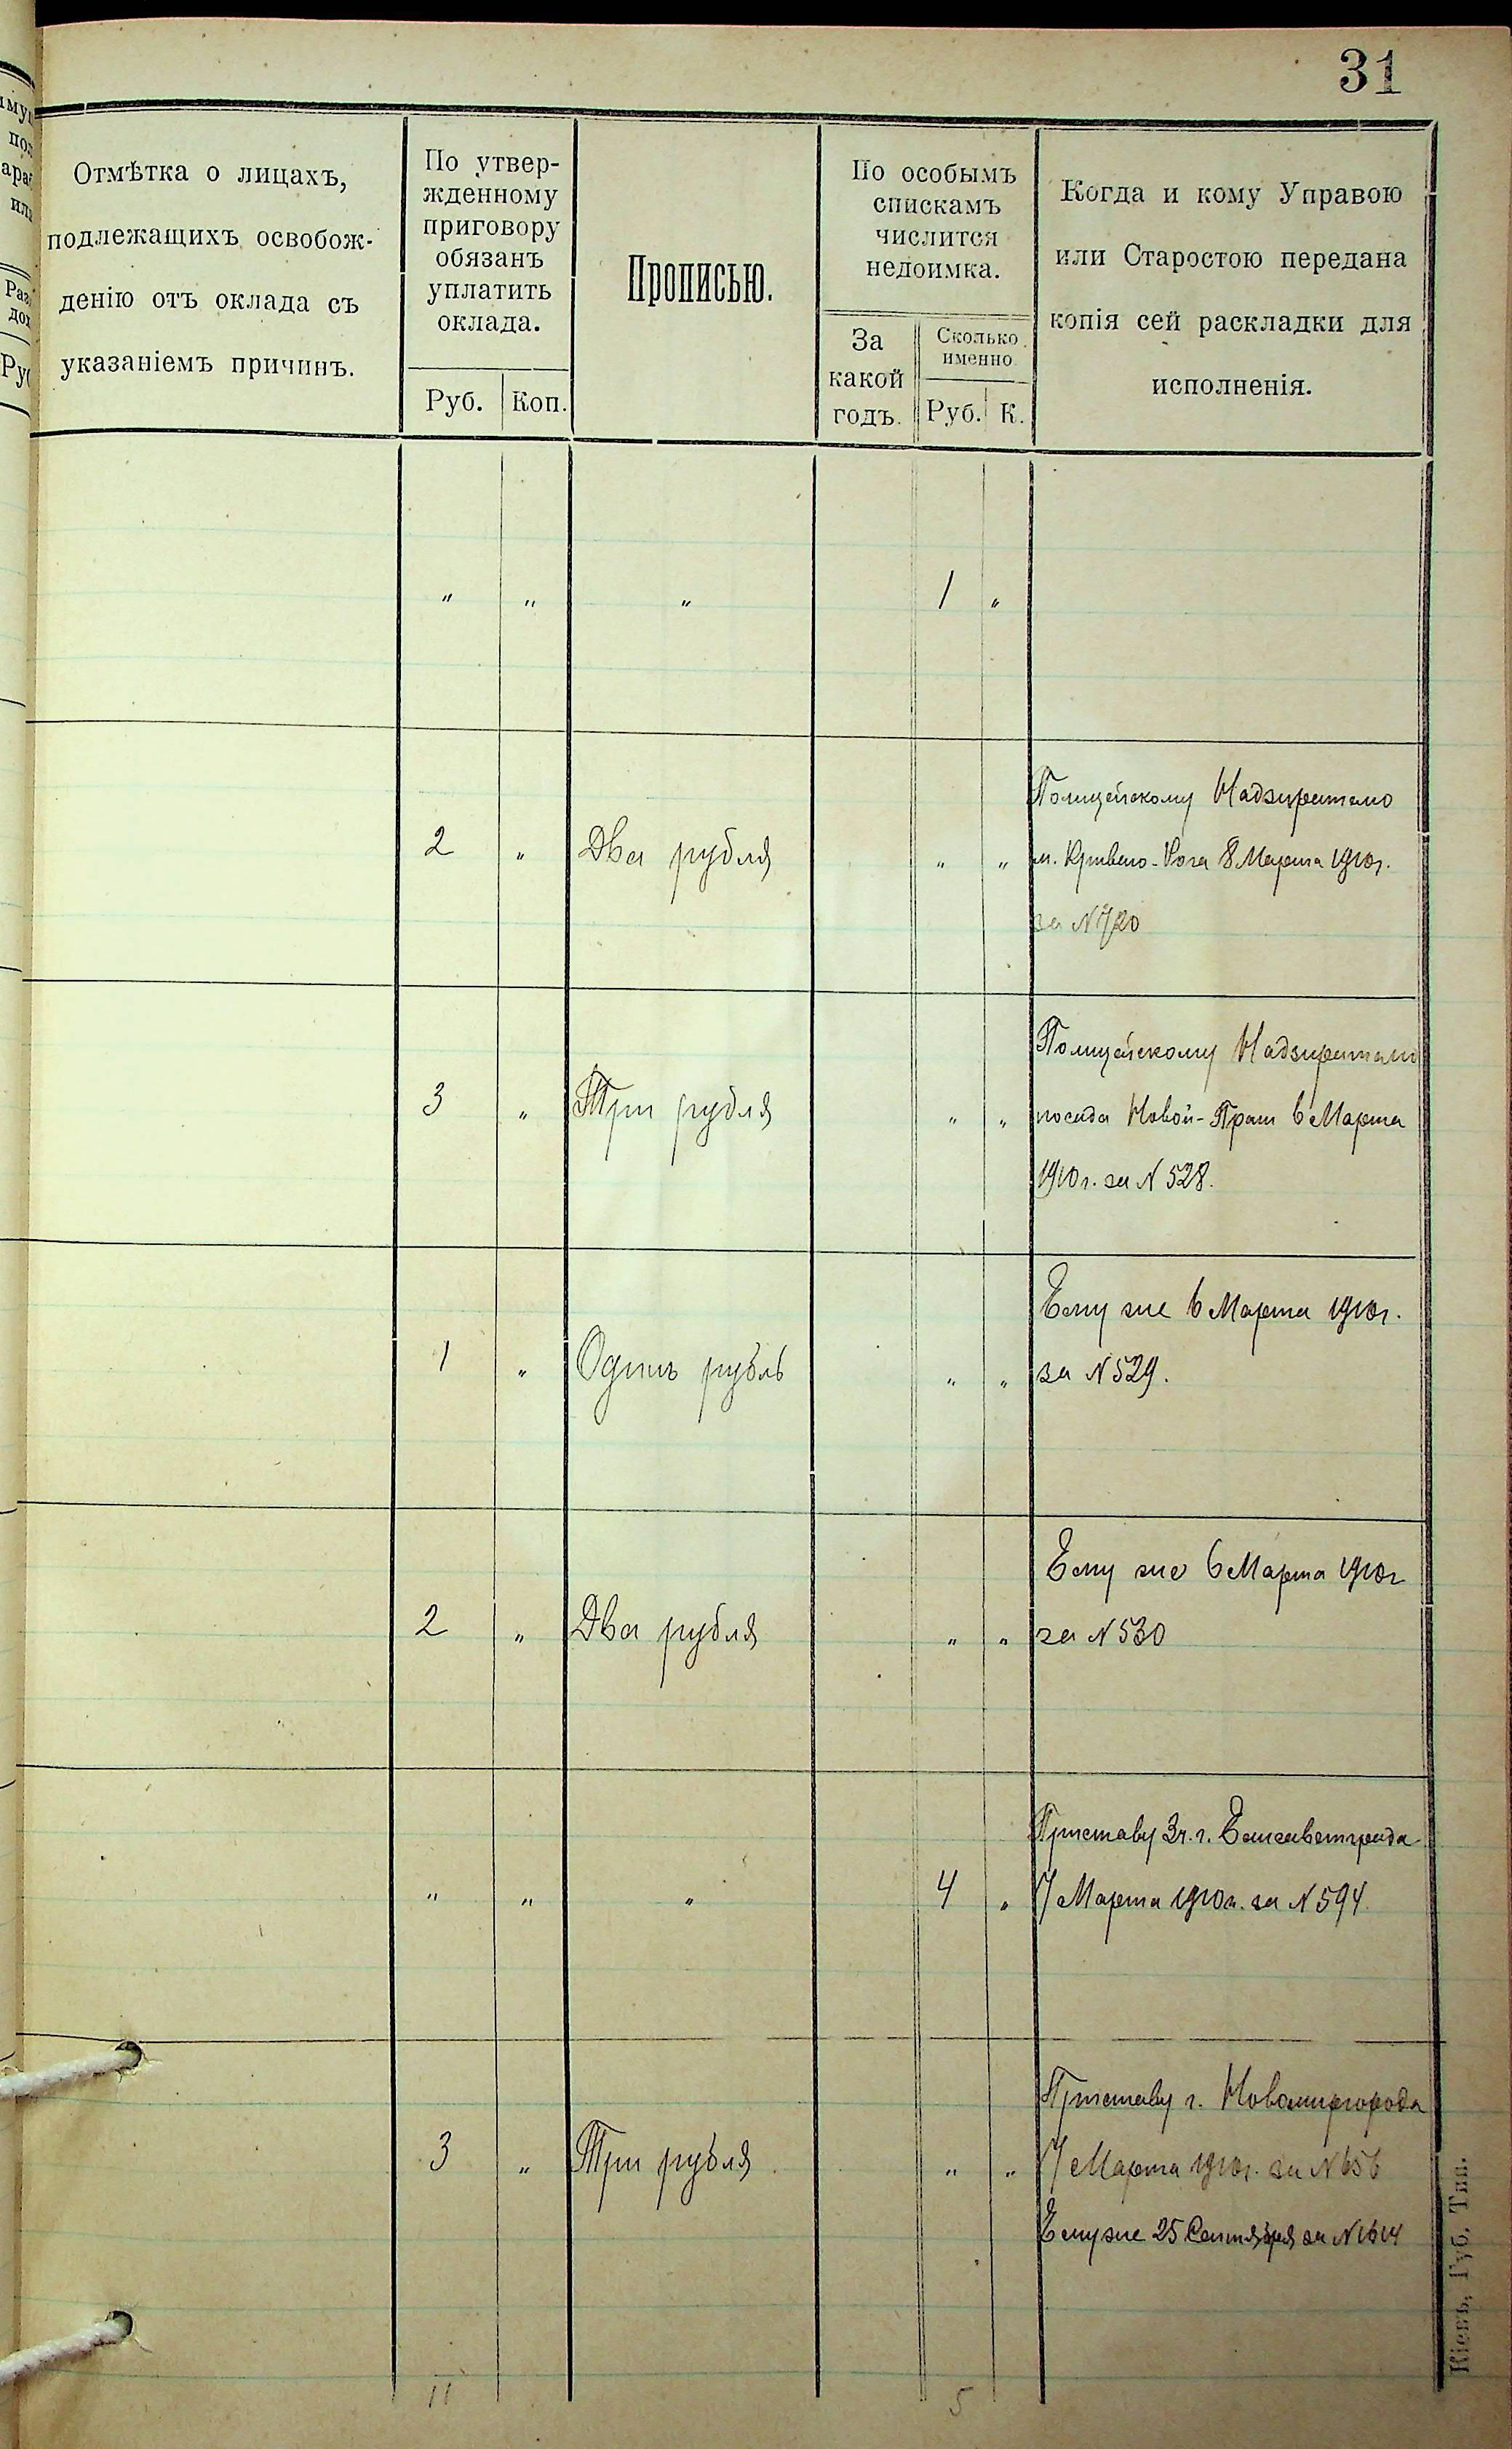 31
Отмѣтка о лицахъ,
подлежащихъ освобож-
денію отъ оклада съ
указаніемъ причинъ.
По утвер-
жденному
приговору
обязанъ
уплатить
оклада.
Руб. Коп.
Прописью.
По особымъ
спискамъ
числится
недоимка.
За
какой
годъ.
Сколько
именно
Руб. К.
Когда и кому Управою
или Старостою передана
копія сей раскладки для
исполненія.
" " " 1 "
Полицейскому Надзирателю
2 " Два рубля " " м. Кривого-Рога 8 Марта 1910г.
за N 720
Полицейскому Надзирателю
3 " Три рубля " " посада Новой-Праги 6 Марта
1910 г. за N 528.
Ему же 6 Марта 1910г.
1 " Одинъ рубль " " за N 529.
Ему же 6 Марта 1910г
2 " Два рубля " " за N 530
Приставу 3 ч. г. Елисаветграда
" " " 4 " 7 Марта 1910г. за N 594
Приставу г. Новомиргорода
3 " Три рубля " " 7 Марта 1910г. за N 656
Ему же 25 Сентября за N 1614
11 5
Кіевъ, Губ. Тип.